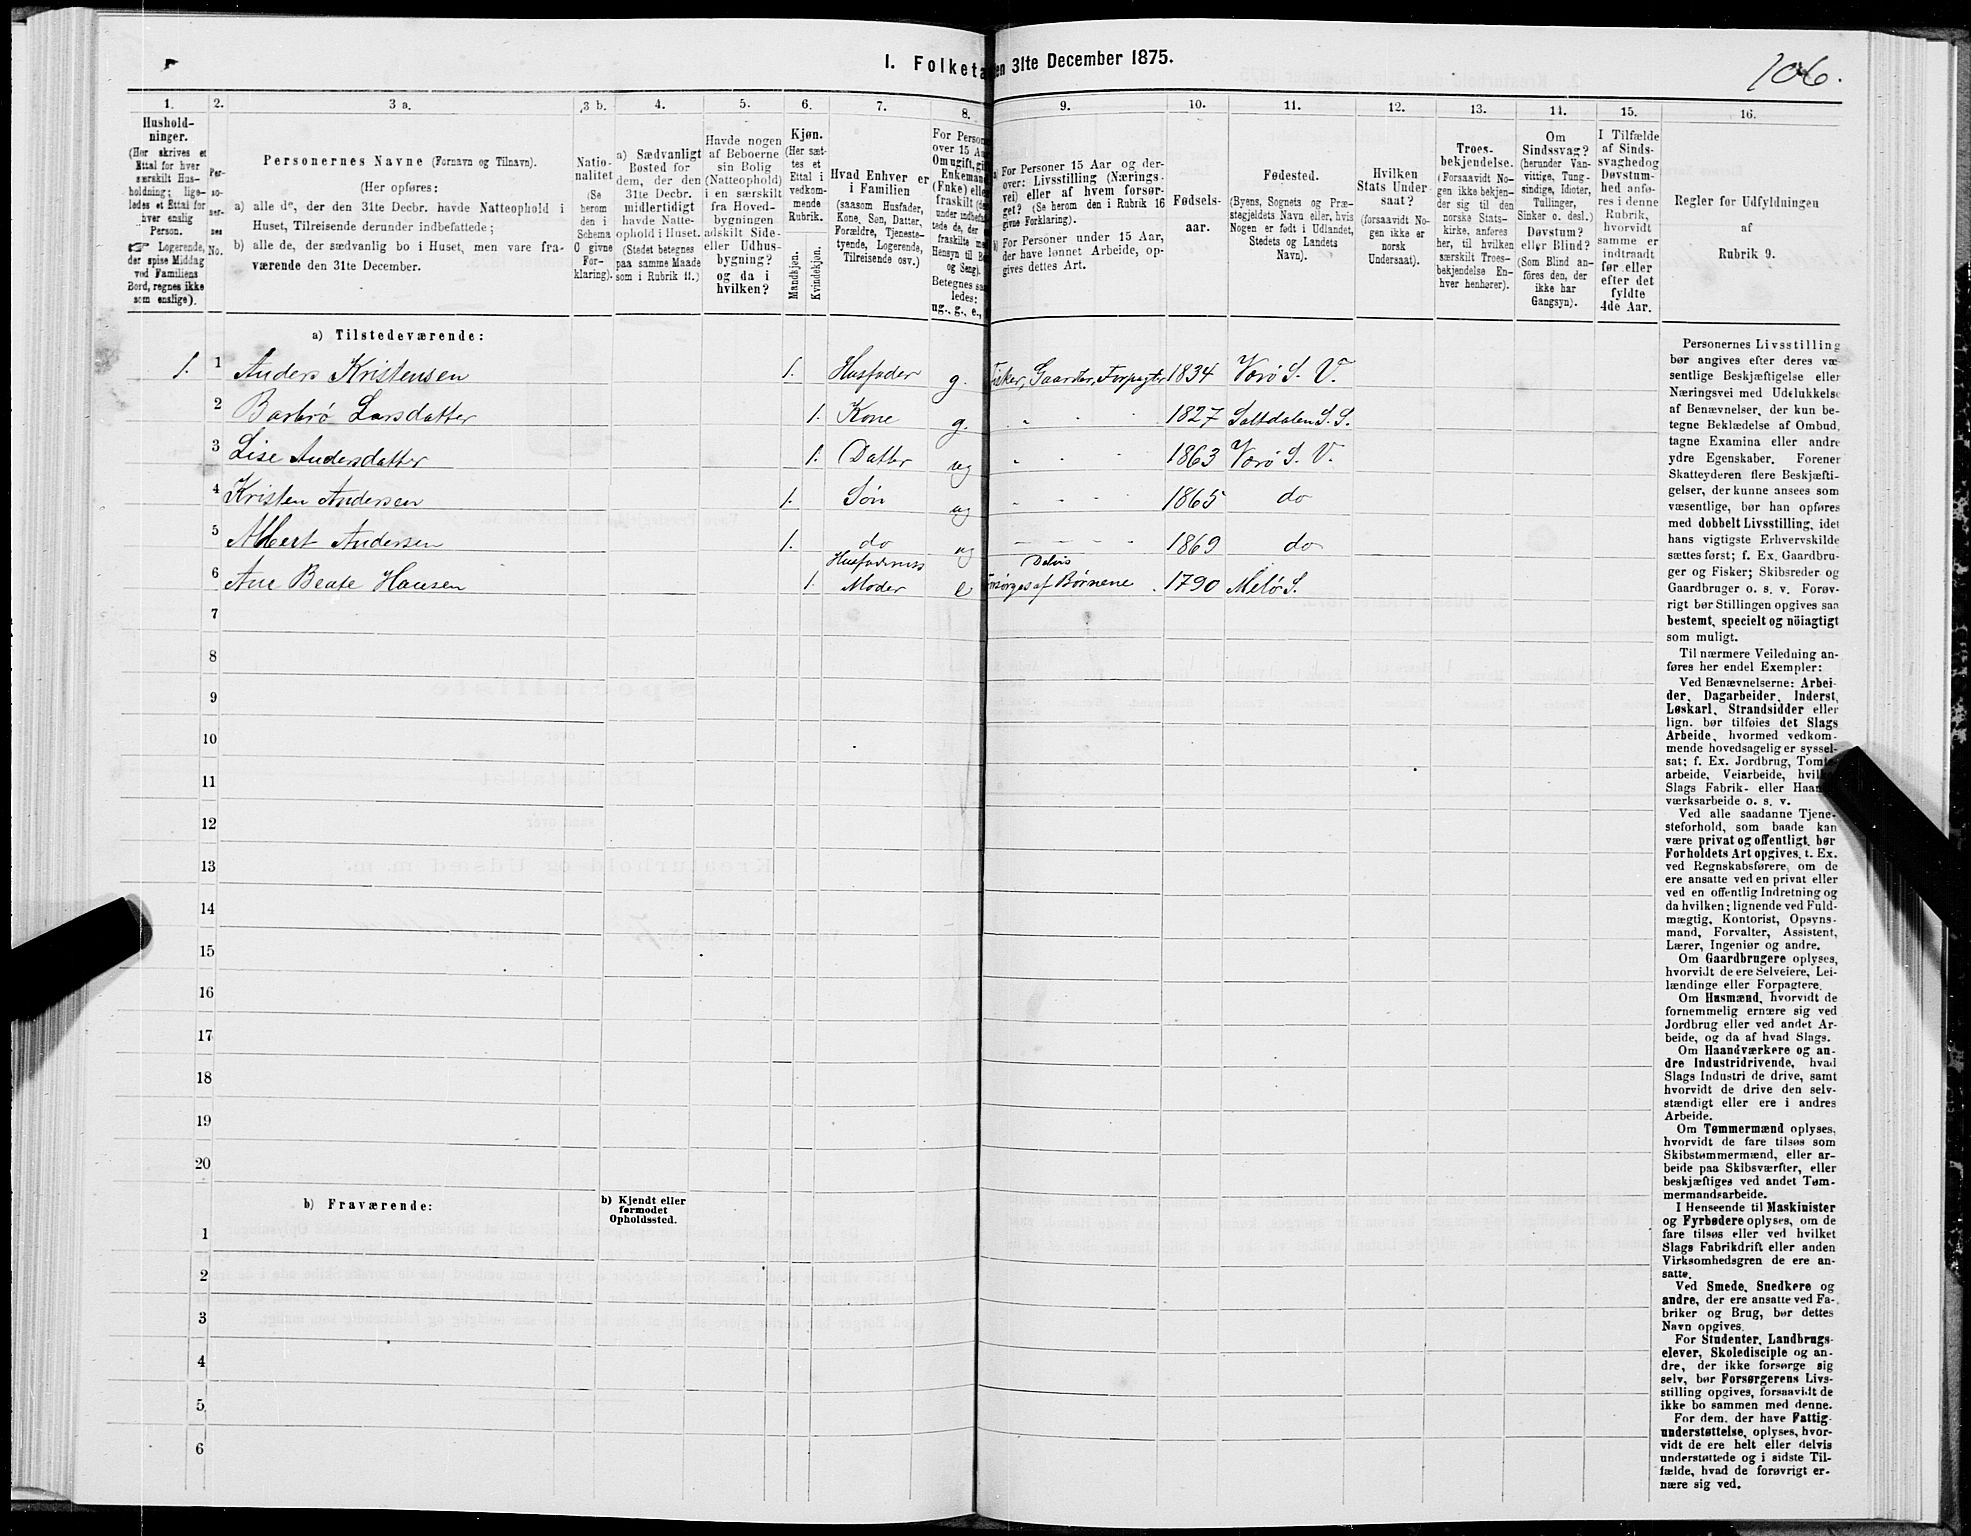 I. Folketa en 31te December 1875.
106.
1.
2.
3 a.
3 b.
4.
5.
6.
7.
8.
9.
10.
11.
12.
13.
14.
15.
16.
Hushold-
ninger.
(Her skrives et
Ettal for hver
særskilt Hus-
holdning; lige-
ledes et Ettal for
hver enslig
Person.
☞ Logerende,
der spise Middag
ved Familiens
Bord, regnes ikke
som enslige).
Per-
so-
ner-
nes
No.
Personernes Navne (Fornavn og Tilnavn).
(Her opføres:
a) alle de, der den 31te Decbr. havde Natteophold i
Huset, Tilreisende derunder indbefattede;
b) alle de, der sædvanlig bo i Huset, men vare fra-
værende den 31te December.
Natio-
nalitet
(Se
herom
den i
Schema
O givne
For-
klaring).
a) Sædvanligt
Bosted for
dem, der den
31te Decbr.
midlertidigt
havde Natte-
ophold i Huset.
(Stedet betegnes
paa samme Maade
som i Rubrik 11.)
Havde nogen
af Beboerne
sin Bolig
(Natteophold)
i en særskilt
fra Hoved-
bygningen
adskilt Side-
eller Udhus-
bygning?
og da i
hvilken?
Kjøn.
(Her sæt-
tes et
Ettal i
vedkom-
mende
Rubrik.
Mandkjøn.
Kvindekjøn.
Hvad Enhver er
i Familien
(saasom Husfader,
Kone, Søn, Datter,
Forældre, Tjeneste-
tyende, Logerende,
Tilreisende osv.)
For Person
over 15 Aa
Om ugift, gif
Enkemand
(Enke) elle
fraskilt (de
under indbefat-
tede de, der
fraskilte me
Hensyn til Bo
og Seng).
Betegnes saa
ledes:
ug., g., e.,
a) For Personer 15 Aar og der-
over: Livsstilling (Nærings-
vei) eller af hvem forsør-
get? (Se herom den i Rubrik 16
givne Forklaring).
b) For Personer under 15 Aar,
der have lønnet Arbeide, op-
gives dettes Art.
Fødsels-
aar.
Fødested.
(Byens, Sognets og Præ-
stegjeldets Navn eller, hvis
Nogen er født i Udlandet,
Stedets og Landets
Navn).
Hvilken
Stats Under-
saat?
(forsaavidt No-
gen ikke er
norsk
Undersaat).
Troes-
bekjendelse.
(Forsaavidt No-
gen ikke bekjen-
der sig til den
norske Stats-
kirke, anføres
her, til hvilken
særskilt Troes-
bekjendelse En-
hver henhører).
Om
Sindssvag?
(herunder Van-
vittige, Tung-
sindige, Idioter,
Tullinger,
Sinker o. desl.)
Døvstum?
eller Blind?
(Som Blind an-
føres den, der
ikke har
Gangsyn).
I Tilfælde
af Sinds-
svaghed og
Døvstum-
hed anfø-
res i denne
Rubrik,
hvorvidt
samme er
indtraadt
før eller
efter det
fyldte
4de Aar.
Regler for Udfyldningen
af
Rubrik 9.
a) Tilstedeværende:
1. 1 Anders Kristensen 1. Husfader g. Fisker, Gaardbr, Forpagter 1834 Værø S. V.
2 Barbrø Larsdatter 1. Kone g. " " 1827 Saltdalen S. S.
3 Lise Andersdatter 1. Datter ug " " " 1863 Værø S. V.
4 Kristen Andersen 1. Søn ug " " " 1865 do
5 Albert Andersen 1. do ug " " " 1869 do
6 Ane Beate Hansen 1. Husfaderens Moder e Delvis Forsørges af Børnene 1790 Melø S.
7
8
9
10
11
12
13
14
15
16
17
18
19
20
b) Fraværende:
b) Kjendt eller
formodet
Opholdssted.
1
2
3
4
5
6
Personernes Livsstilling
bør angives efter deres væ-
sentlige Beskjæftigelse eller
Næringsvei med Udelukkelse
af Benævnelser, der kun be-
tegne Beklædelse af Ombud,
tagne Examina eller andre
ydre Egenskaber. Forener
Skatteyderen flere Beskjæfti-
gelser, der kunne ansees som
væsentlige, bør han opføres
med dobbelt Livsstilling, idet
hans vigtigste Erhvervskilde
sættes først; f. Ex. Gaardbru-
ger og Fisker; Skibsreder og
Gaardbruger o. s. v. Forøv-
rigt bør Stillingen opgives saa
bestemt, specielt og nöiagtigt
som muligt.
Til nærmere Veiledning an-
føres her endel Exempler:
Ved Benævnelserne: Arbei-
der, Dagarbeider, Inderst,
Løskarl, Strandsidder eller
lign. bør tilføies det Slags
Arbeide, hvormed vedkom-
mende hovedsagelig er syssel-
sat; f. Ex. Jordbrug, Tomte-
arbeide, Veiarbeide, hvilke
Slags Fabrik- eller Haand-
værksarbeide o. s. v.
Ved alle saadanne Tjene-
steforhold, som baade kan
være privat og offentligt, bør
Forholdets Art opgives, t. Ex.
ved Regnskabsførere, om de
ere ansatte ved en privat eller
ved en offentlig Indretning og
da hvilken; lignende ved Fuld-
mægtig, Kontorist, Opsyns-
mand, Forvalter, Assistent,
Lærer, Ingeniør og andre.
Om Gaardbrugere oplyses,
hvorvidt de ere Selveiere, Lei-
lændinge eller Forpagtere.
Om Husmænd, hvorvidt de
fornemmelig ernære sig ved
Jordbrug eller ved andet Ar-
beide, og da af hvad Slags.
Om Haandværkere og an-
dre Industridrivende, hvad
Slags Industri de drive, samt
hvorvidt de drive den selv-
stændigt eller ere i andres
Arbeide.
Om Tømmermænd oplyses,
hvorvidt de fare tilsøs som
Skibstømmermænd, eller ar-
beide paa Skibsværfter, eller
beskjæftiges ved andet Tøm-
mermandsarbeide.
I Henseende til Maskinister
og Fyrbødere oplyses, om de
fare tilsøs eller ved hvilket
Slags Fabrikdrift eller anden
Virksomhedsgren de ere an-
satte.
Ved Smede, Snedkere og
andre, der ere ansatte ved Fa-
briker og Brug, bør dettes
Navn opgives.
For Studenter, Landbrugs-
elever, Skoledisciple og an-
dre, der ikke forsørge sig
selv, bør Forsørgerens Livs-
stilling opgives, forsaavidt de
ikke bo sammen med denne.
For dem, der have Fattig-
understøttelse, oplyses, hvor-
vidt de ere helt eller delvis
understøttede og i sidste Til-
fælde, hvad de forøvrigt er-
nære sig ved.